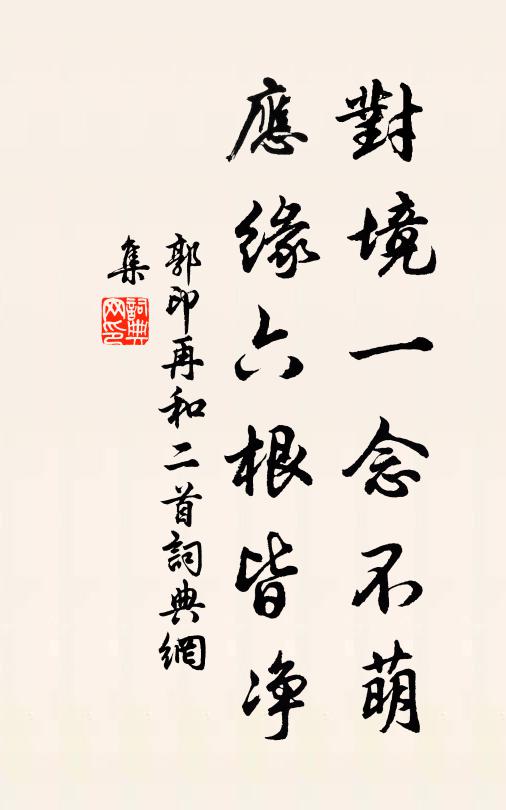 對境一念不萌
應緣六根皆净
郭印再和二首詞典網
集
詞典网印